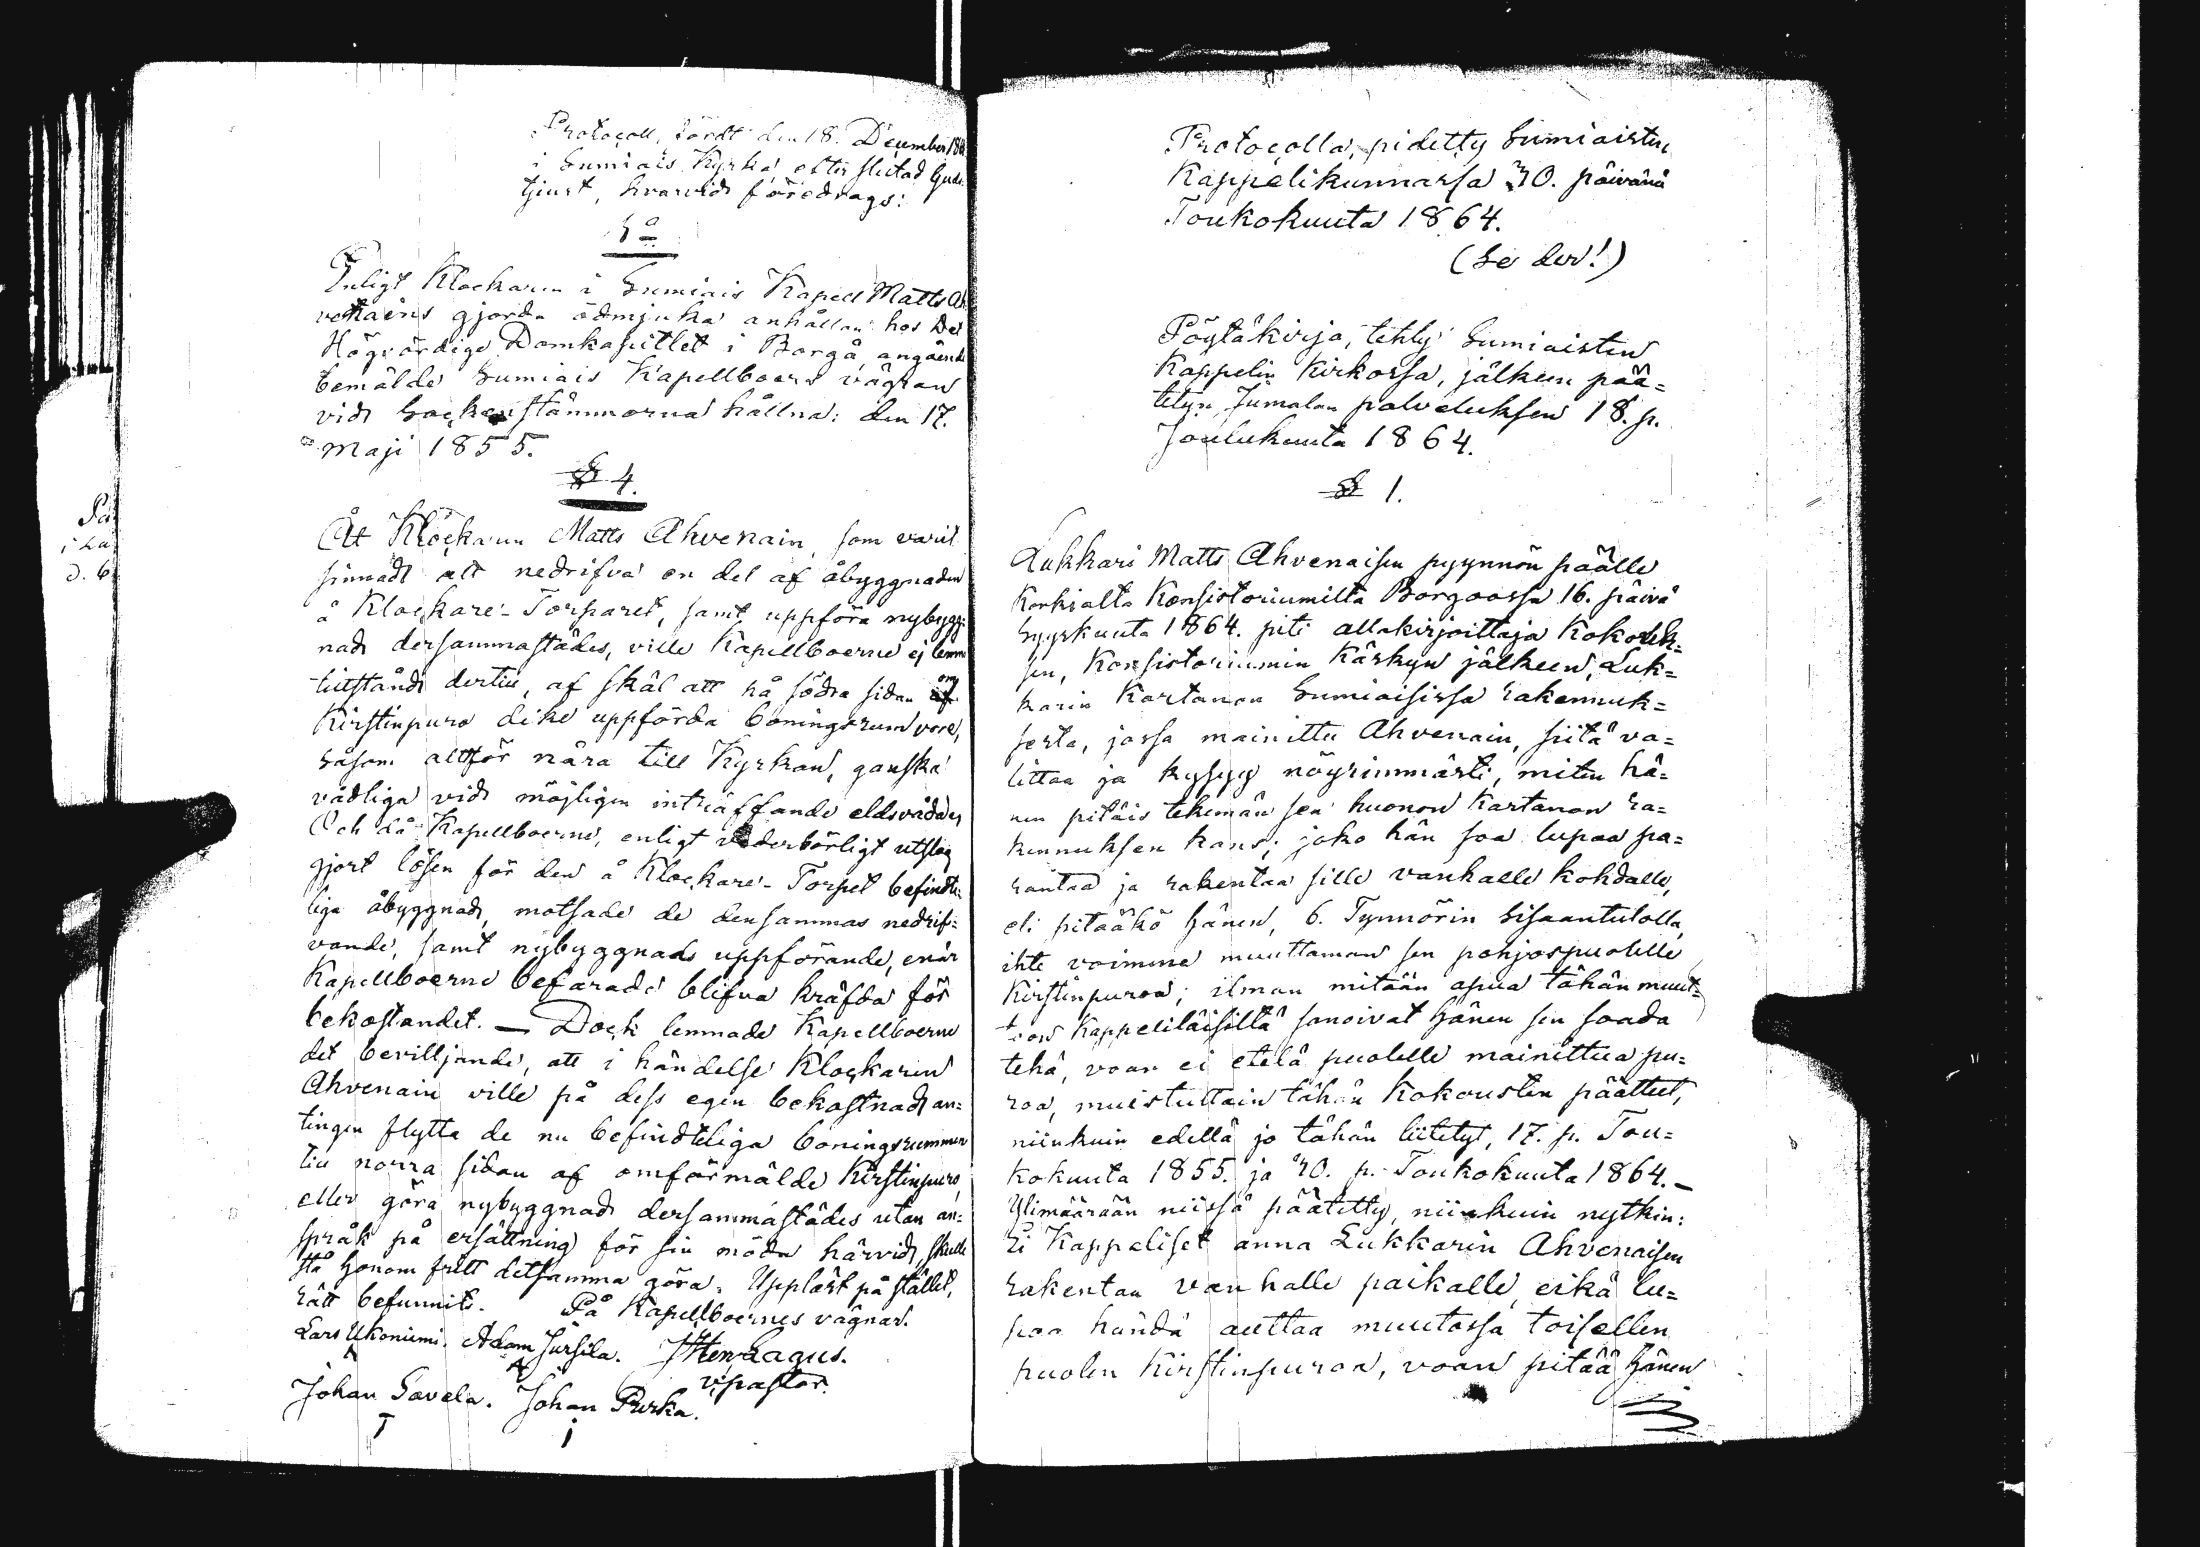 Protocoll, fördt den 18. December 186
i Sumiais Kyrka, efter slutad Guds
tjenst, hvarvid föredrogs:
Enligt Klockaren i Sumiais Kapell Matts Ah
venains gjorda ödmjuka anhållan hos Det
Högvördige Domkapitlet i Borgå, angående
bemälde Sumiais Kapellboers vägran
vid Sockenstämmorna hållna: den 17.
Maji 1855.
§ 4.
Åt Klockaren Matts Ahvenain, som varit
sinnad att nedrifva en del af åbyggnaden
å Klockare-Torparet, samt uppföra nybygg-
nad dersammastädes, ville Kapellboerne ej lemna
tillstånd dertill, af skäl att på södra sidan om
Kirstinpuro dike uppförda boningsrum vore,
såsom alltför nära till Kyrkan, ganska
vådliga vid möjligen inträffande eldsvådor
Och då Kapellboerne, enligt vederbörligt utslag
gjort lösen för den å Klockare-Torpet befindte-
liga åbyggnad, motsade de densammas nedrif-
vande, samt nybyggnads uppförande, enär
Kapellboerne befarade blifva kräfda för
bekostandet. — Dock lemnade Kapellboerne
det bevilljande, att i händelse Klockaren
Ahvenain ville på dess egen bekostnad an=
tingen flytta de nu befindteliga boningsrummen
till norra sidan af omförmälde Kirstinpuro,
eller göra nybyggnad dersammastädes utan an=
språk på ersättning för sin möda härvid, skulle
stå honom fritt detsamma göra. Uppläst på stället,
rätt befunnit. På Kapellboernes vägnar.
Lars Ukoniemi. Adam Jussila. Hen Lagus.
v. pastor.
Johan Savela. Johan Purka.
Protocolla, pidetty Sumiaisten
Kappelikunnassa 30. päivänä
Toukokuuta 1864.
(Se der!)
Pöytäkirja, tehty Sumiaisten
Kappelin Kirkossa, jälkeen pää=
tetyn Jumalan palveluksen 18. p.
Joulukuuta 1864.
§ 1.
Lukkari Matts Ahvenaisen pyynnön päälle
Korkialta Konsistoriumilta Borgoossa 16. päivä
Syyskuuta 1864. piti allakirjoittaja Kokouk-
sen, Konsistoriumin Käskyn jälkeen, Luk=
karin Kartanon Sumiaisissa rakennuk=
sesta, jossa mainittu Ahvenain, siitä va=
littaa ja kysyy nöyrimmästi, miten hä=
nen pitäis tekemän sen huonon Kartanon ra=
kennuksen kans; joko hän saa lupaa pa=
rantaa ja rakentaa sille vanhalle kohdalle,
eli pitääkö hänen, 6. Tynnörin Sisaantulolla,
ihte voimme muuttaman sen pohjospuolelle
Kirstinpuroa; ilman mitään apua tähän muut=
toon Kappeliläisiltä sanoivat hänen sen saada
tehä, voan ei etelä puolelle mainittua pu=
roa, muistuttain tähän Kokousten päätteet,
niinkuin edellä jo tähän liitetyt, 17. p. Tou=
kokuuta 1855. ja 30. p. Toukokuuta 1864. —
Ylimäärään niissä päätetty, niinkuin nytkin:
Ei Kappeliset anna Lukkarin Ahvenaisen
rakentaa vanhalle paikalle, eikä lu=
paa händä auttaa muutossa toisellen
puolen Kirstinpuroa, voan pitää hänen